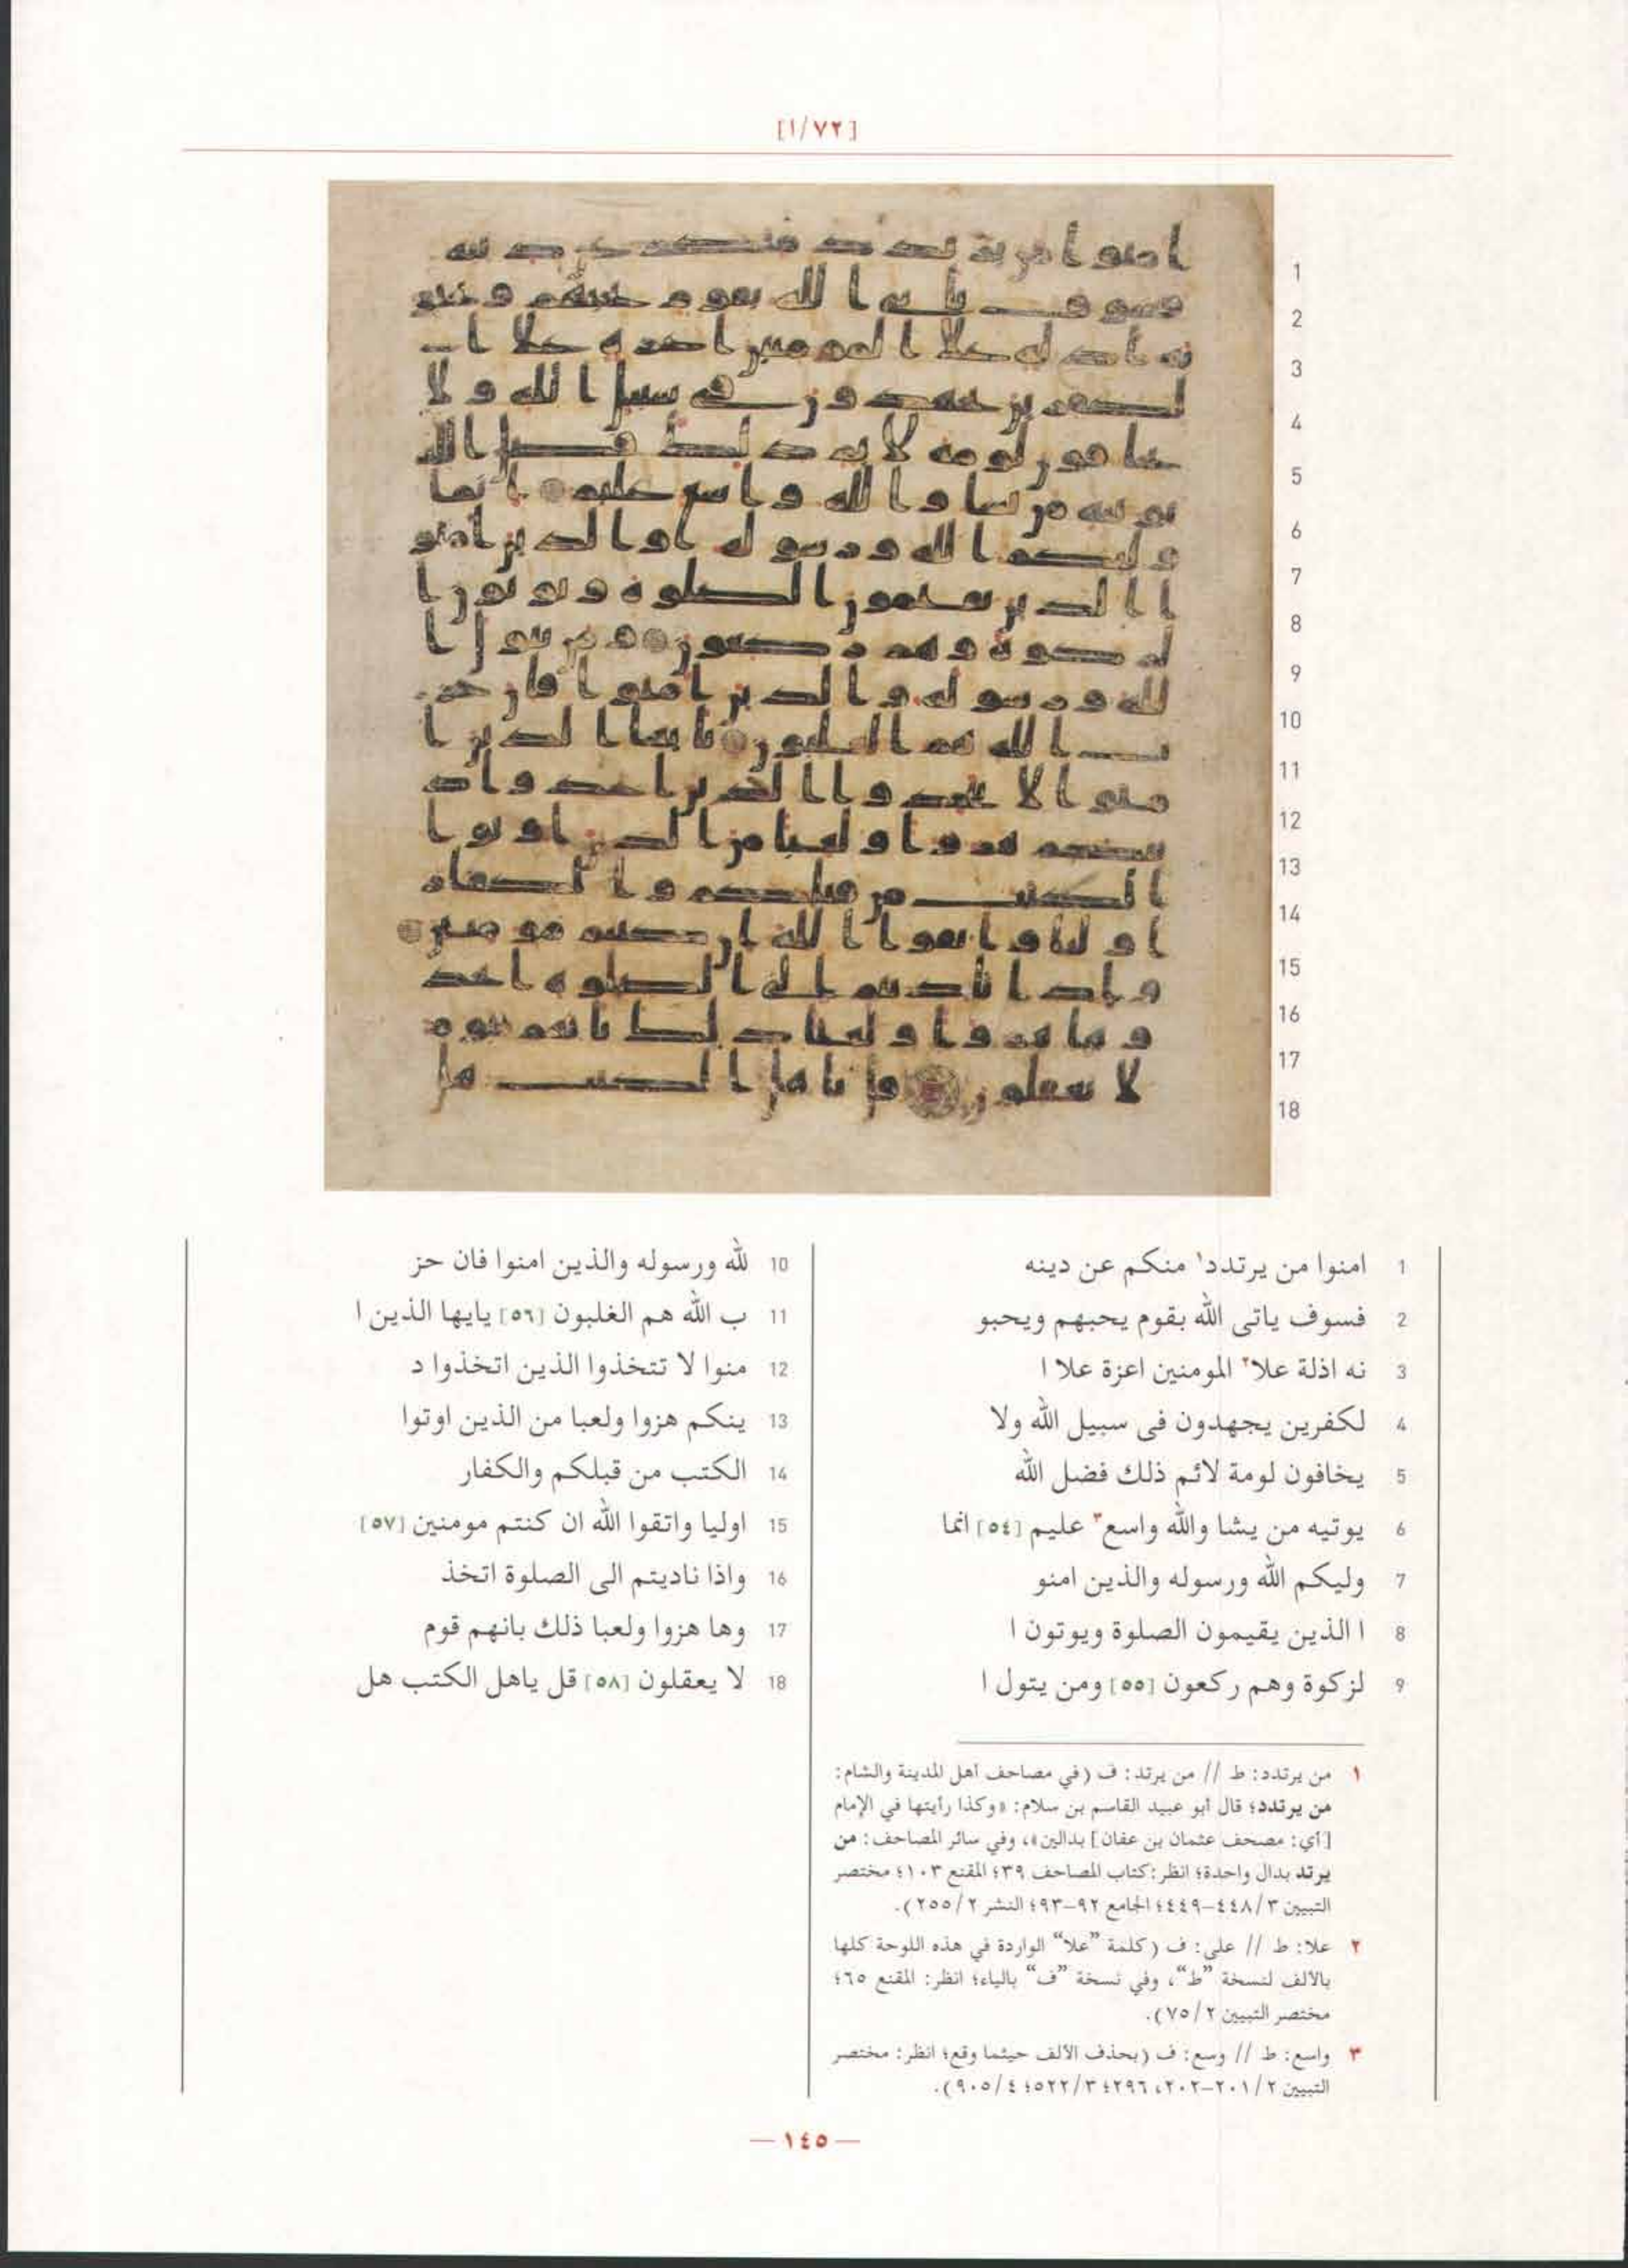 [١/٧٢]
1
2
3
4
5
6
7
8
9
10
11
12
13
14
15
16
17
18
1 امنوا من يرتدد١ منكم عن دينه
2 فسوف ياتى الله بقوم يحبهم ويحبو
3 نه اذلة علا٢ المومنين اعزة علا ا
4 لكفرين يجهدون فى سبيل الله ولا
5 يخافون لومة لائم ذلك فضل الله
6 يوتيه من يشا والله واسع٣ عليم [٥٤] انما
7 وليكم الله ورسوله والذين امنو
8 ا الذين يقيمون الصلوة ويوتون ا
9 لزكوة وهم ركعون [٥٥] ومن يتول ا
10 لله ورسوله والذين امنوا فان حز
11 ب الله هم الغلبون [٥٦] يايها الذين ا
12 منوا لا تتخذوا الذين اتخذوا د
13 ينكم هزوا ولعبا من الذين اوتوا
14 الكتب من قبلكم والكفار
15 اوليا واتقوا الله ان كنتم مومنين [٥٧]
16 واذا ناديتم الى الصلوة اتخذ
17 وها هزوا ولعبا ذلك بانهم قوم
18 لا يعقلون [٥٨] قل ياهل الكتب هل
١ من يرتدد: ط // من يرتد: ف (في مصاحف أهل المدينة والشام:
من يرتدد؛ قال أبو عبيد القاسم بن سلام: «وكذا رأيتها في الإمام
[أي: مصحف عثمان بن عفان] بدالين»، وفي سائر المصاحف: من
يرتد بدال واحدة؛ انظر: كتاب المصاحف ٣٩؛ المقنع ١٠٣؛ مختصر
التبيين ٣/ ٤٤٨–٤٤٩؛ الجامع ٩٢–٩٣؛ النشر ٢/ ٢٥٥).
٢ علا: ط // على: ف (كلمة ”علا“ الواردة في هذه اللوحة كلها
بالألف لنسخة ”ط“، وفي نسخة ”ف“ بالياء؛ انظر: المقنع ٦٥؛
مختصر التبيين ٢/ ٧٥).
٣ واسع: ط // وسع: ف (بحذف الألف حيثما وقع؛ انظر: مختصر
التبيين ٢/ ٢٠١–٢٠٢، ٢٩٦؛ ٣/ ٥٢٢؛ ٤/ ٩٠٥).
— ١٤٥ —